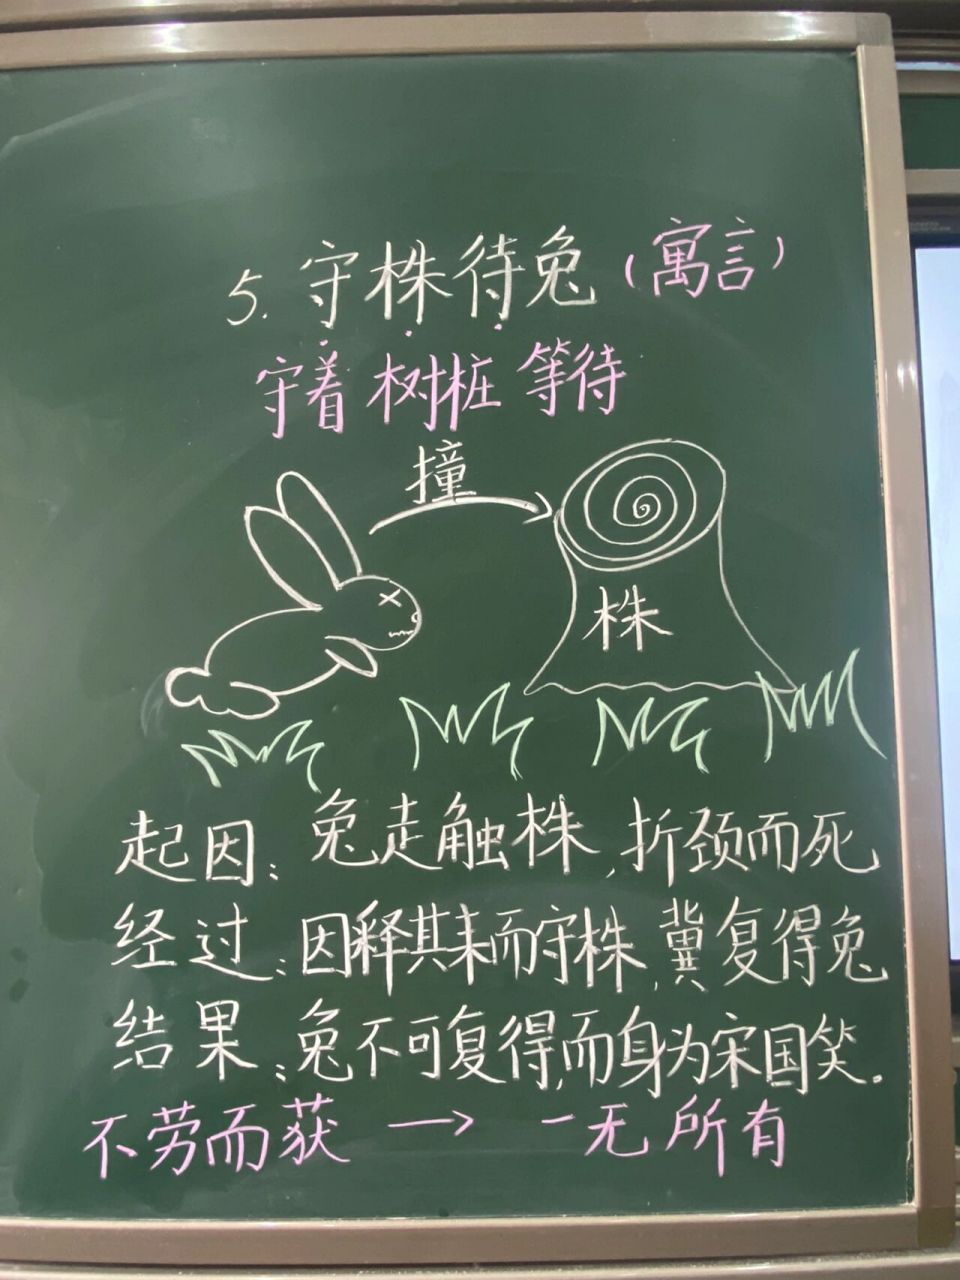 5. 守株待兔（寓言）
守着 树桩 等待
撞
株
起因：兔走触株，折颈而死
经过：因释其耒而守株，冀复得兔
结果：兔不可复得，而身为宋国笑.
不劳而获 → 一无所有